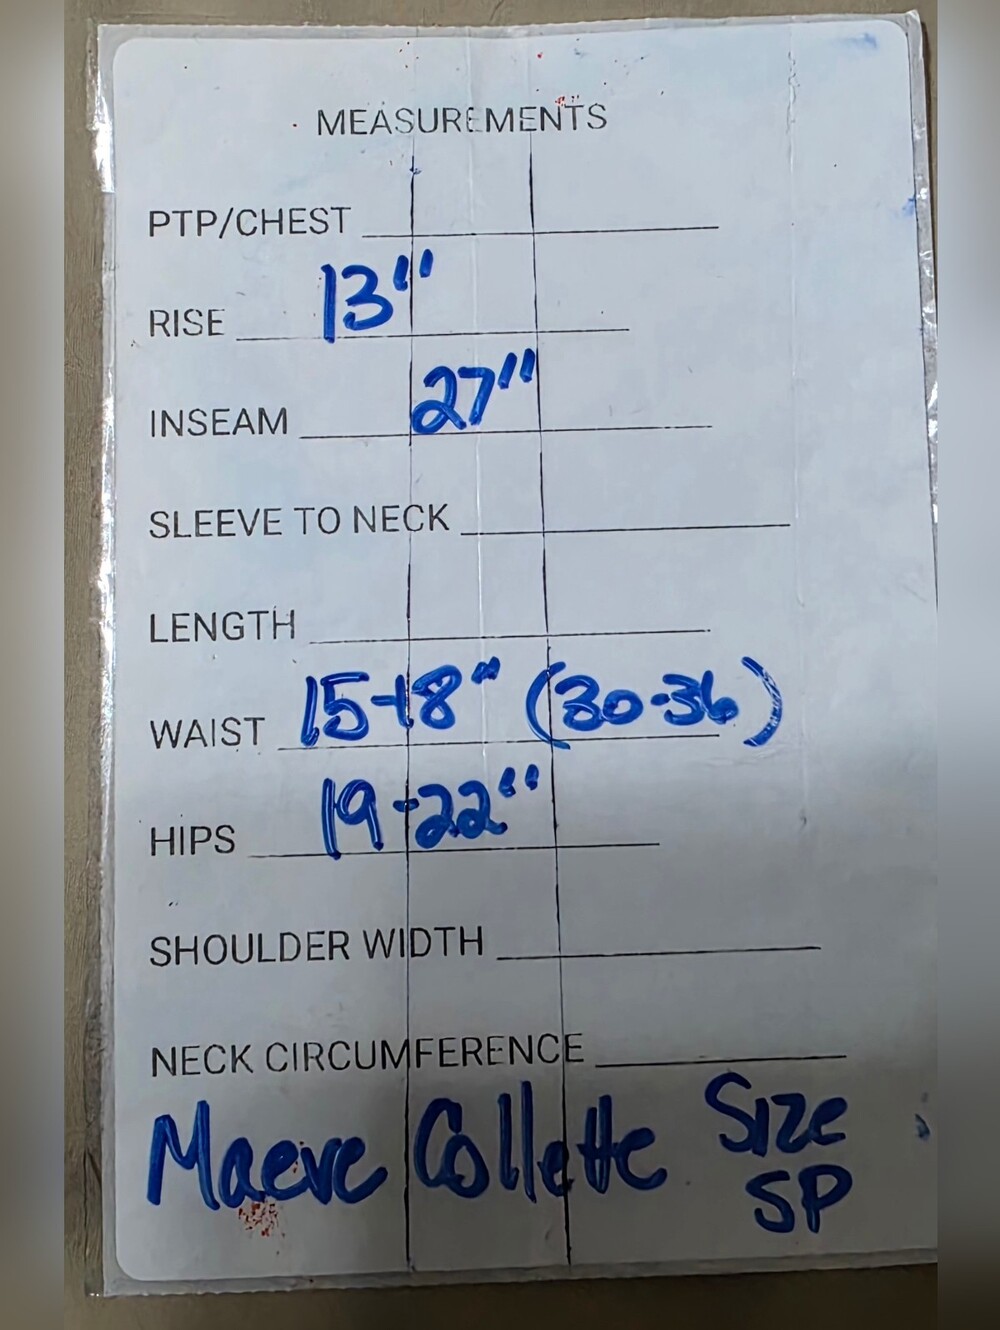 MEASUREMENTS
PTP/CHEST
RISE 13"
INSEAM 27"
SLEEVE TO NECK
LENGTH
WAIST 15-18" (30-36)
HIPS 19-22"
SHOULDER WIDTH
NECK CIRCUMFERENCE
Maeve Collette Size
SP